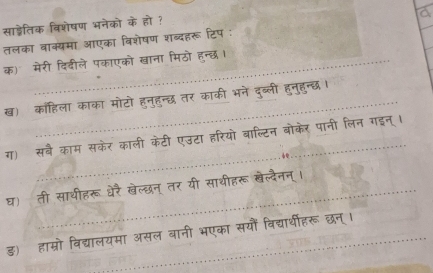 साङ्केतिक विशेषण भनेको के हो ?
तलका वाक्यमा आएका विशेषण शब्दहरू टिप :
क) मेरी दिदीले पकाएको खाना मिठो हुन्छ ।
ख) काँहिला काका मोटो हुनुहुन्छ तर काकी भने दुब्ली हुनुहुन्छ ।
ग) सबै काम सकेर काली केटी एउटा हरियो बाल्टिन बोकेर पानी लिन गइन् ।
घ) ती साथीहरू धेरै खेल्छन् तर यी साथीहरू खेल्दैनन् ।
ङ) हाम्रो विद्यालयमा असल बानी भएका सयौँ विद्यार्थीहरू छन् ।